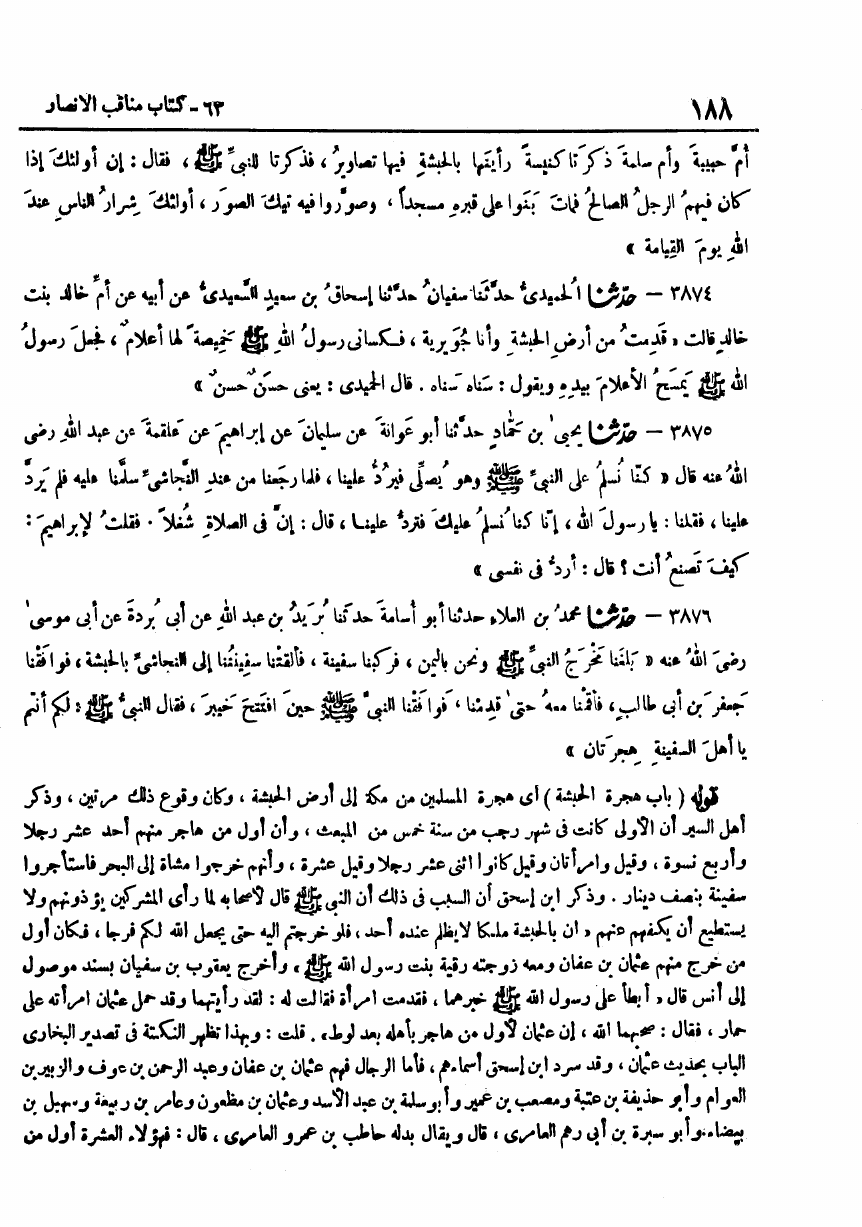 ١٨٨
٦٣ - كتاب مناقب الانصار
أمَّ حبيبةَ وأم سلمةَ ذكرَتا كنيسةً رأينَها بالحبشةِ فيها تصاويرُ، فذكرتا للنبيِّ ﷺ، فقال: إن أولئكَ إذا
كان فيهمُ الرجلُ الصالحُ فماتَ بَنَوا على قبرِه مسجداً، وصوَّروا فيه تيكَ الصوَر، أولئكَ شِرارُ الناسِ عندَ
اللهِ يومَ القِيامة »
٣٨٧٤ — حدّثنا الحميدىُّ حدَّثَنا سفيانُ حدَّثنا إسحاقُ بن سعيدٍ السَّعيدىُّ عن أبيه عن أمِّ خالد بنت
خالدٍ قالت « قَدِمتُ من أرضِ الحبشةِ وأنا جُوَيرية، فـكسانى رسولُ اللهِ ﷺ خَمِيصةً لها أعلامٌ، فجعلَ رسولُ
الله ﷺ يَمسَحُ الأعلامَ بيدِهِ ويقول: سَناه سَناه. قال الحميدى: يعنى حسَنٌ حسنٌ »
٣٨٧٥ — حدّثنا يحيىٰ بن حَمَّادٍ حدَّثنا أبو عَوانةَ عن سليمانَ عن إبراهيمَ عن عَلقمةَ عن عبد اللهِ رضى
اللهُ عنه قال « كنّا نُسلمُ على النبىِّ ﷺ وهو يُصلِّى فيَرُدُّ علينا، فلما رجَعنا من عندِ النَّجاشىِّ سلَّمنا عليه فلم يَردَّ
علينا، فقلنا: يا رسولَ الله، إنّا كنا نُسلمُ عليكَ فتردُّ علينـا، قال: إنَّ فى الصلاةِ شُغلاً. فقلتُ لإبراهيمَ:
كيفَ تَصنعُ أنت؟ قال: أردُّ فى نفسى »
٣٨٧٦ — حدّثنا محمدُ بن العلاء حدثنا أبو أسامةَ حدَّثَنا بُرَيدُ بن عبد اللهِ عن أبى بُردةَ عن أبى موسىٰ
رضىَ اللهُ عنه « بَلغَنا مَخْرَجُ النبىِّ ﷺ ونحن باليمن، فركبنا سفينة، فألقتْنا سفِينتُنا إلى النجاشىِّ بالحبشة، فوافَقْنا
جَعفرَ بن أبى طالب، فأقمْنا معهُ حتىٰ قدِمْنا، فوافَقْنا النبىَّ ﷺ حينَ افتَتحَ خَيبرَ، فقال النبىُّ ﷺ: لكم أنتم
يا أهلَ السفينةِ هِجرَتان »
قوله ( باب هجرة الحبشة ) أى هجرة المسلمين من مكة إلى أرض الحبشة، وكان وقوع ذلك مرتين، وذكر
أهل السير أن الأولى كانت فى شهر رجب من سنة خمس من المبعث، وأن أول من هاجر منهم أحد عشر رجلا
وأربع نسوة، وقيل وامرأتان وقيل كانوا اثنى عشر رجلا وقيل عشرة، وأنهم خرجوا مشاة إلى البحر فاستأجروا
سفينة بنصف دينار. وذكر ابن إسحق أن السبب فى ذلك أن النبى ﷺ قال لأصحابه لما رأى المشركين يؤذونهم ولا
يستطيع أن يكفهم عنهم « ان بالحبشة ملكا لا يظلم عنده أحد، فلو خرجتم اليه حتى يجعل الله لكم فرجا، فكان أول
من خرج منهم عثمان بن عفان ومعه زوجته رقية بنت رسول الله ﷺ » وأخرج يعقوب بن سفيان بسند موصول
إلى أنس قال « أبطأ على رسول الله ﷺ خبرهما، فقدمت امرأة فقالت له: لقد رأيتهما وقد حمل عثمان امرأته على
حمار، فقال: صحبهما الله، إن عثمان لأول من هاجر بأهله بعد لوط». قلت: وبهذا تظهر النكتة فى تصدير البخارى
الباب بحديث عثمان، وقد سرد ابن إسحق أسماءهم، فأما الرجال فهم عثمان بن عفان وعبد الرحمن بن عوف والزبير بن
العوام وأبو حذيفة بن عتبة ومصعب بن عمير وأبو سلمة بن عبد الأسد وعثمان بن مظعون وعامر بن ربيعة وسهيل بن
بيضاء وأبو سبرة بن أبى رهم العامرى، قال ويقال بدله حاطب بن عمرو العامرى، قال: فهؤلاء العشرة أول من